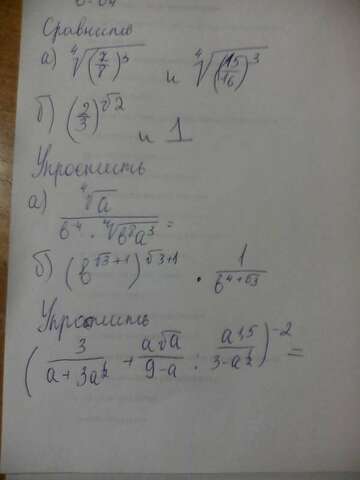 Сравнить
а) ⁴√(7/8)³ и ⁴√(15/16)³
б) (2/3)^√2 и 1
Упростить
а) ⁴√a / (b⁻⁴ · ⁴√(b⁸a³)) =
б) (b^(√3+1))^(√3+1) · 1 / b^(4+√3)
Упростить
(3 / (a + 3a^½) + a√a / (9-a) : a^1,5 / (3-a^½))^-2 =